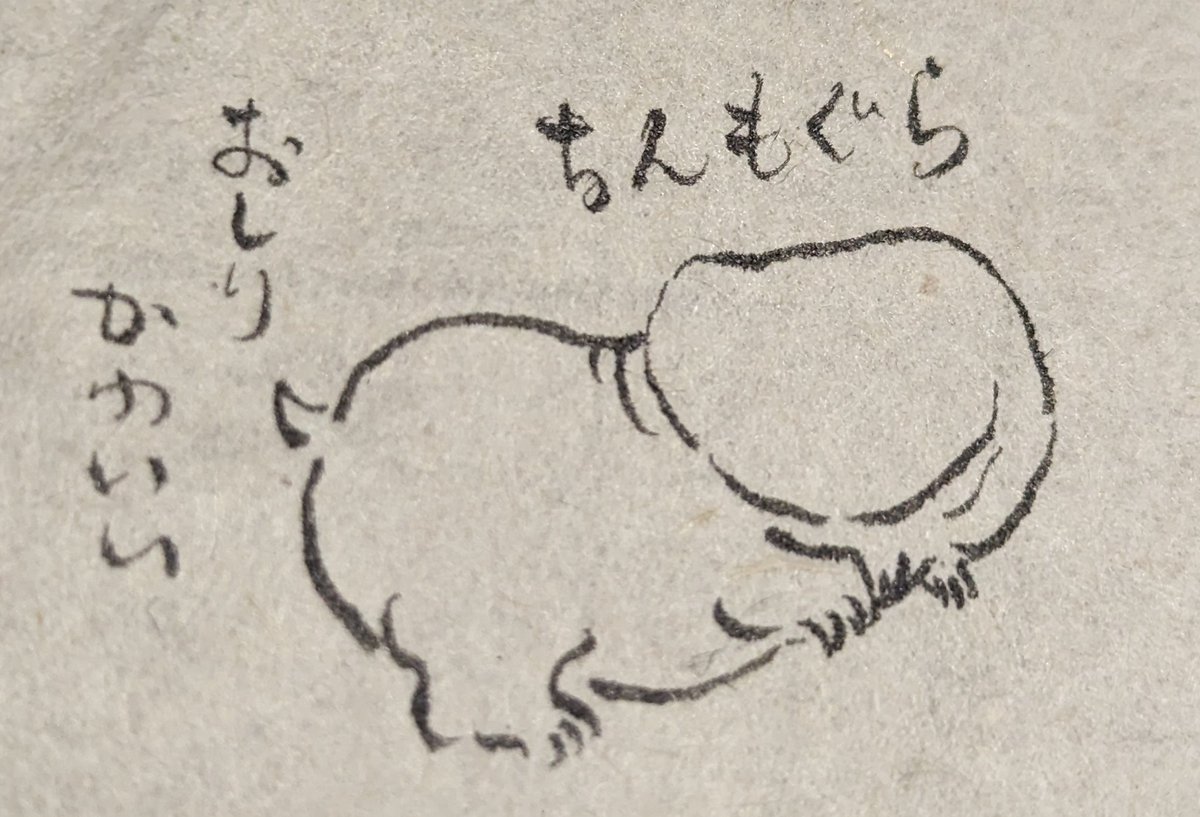 ちんもぐら
おしり
かわいい